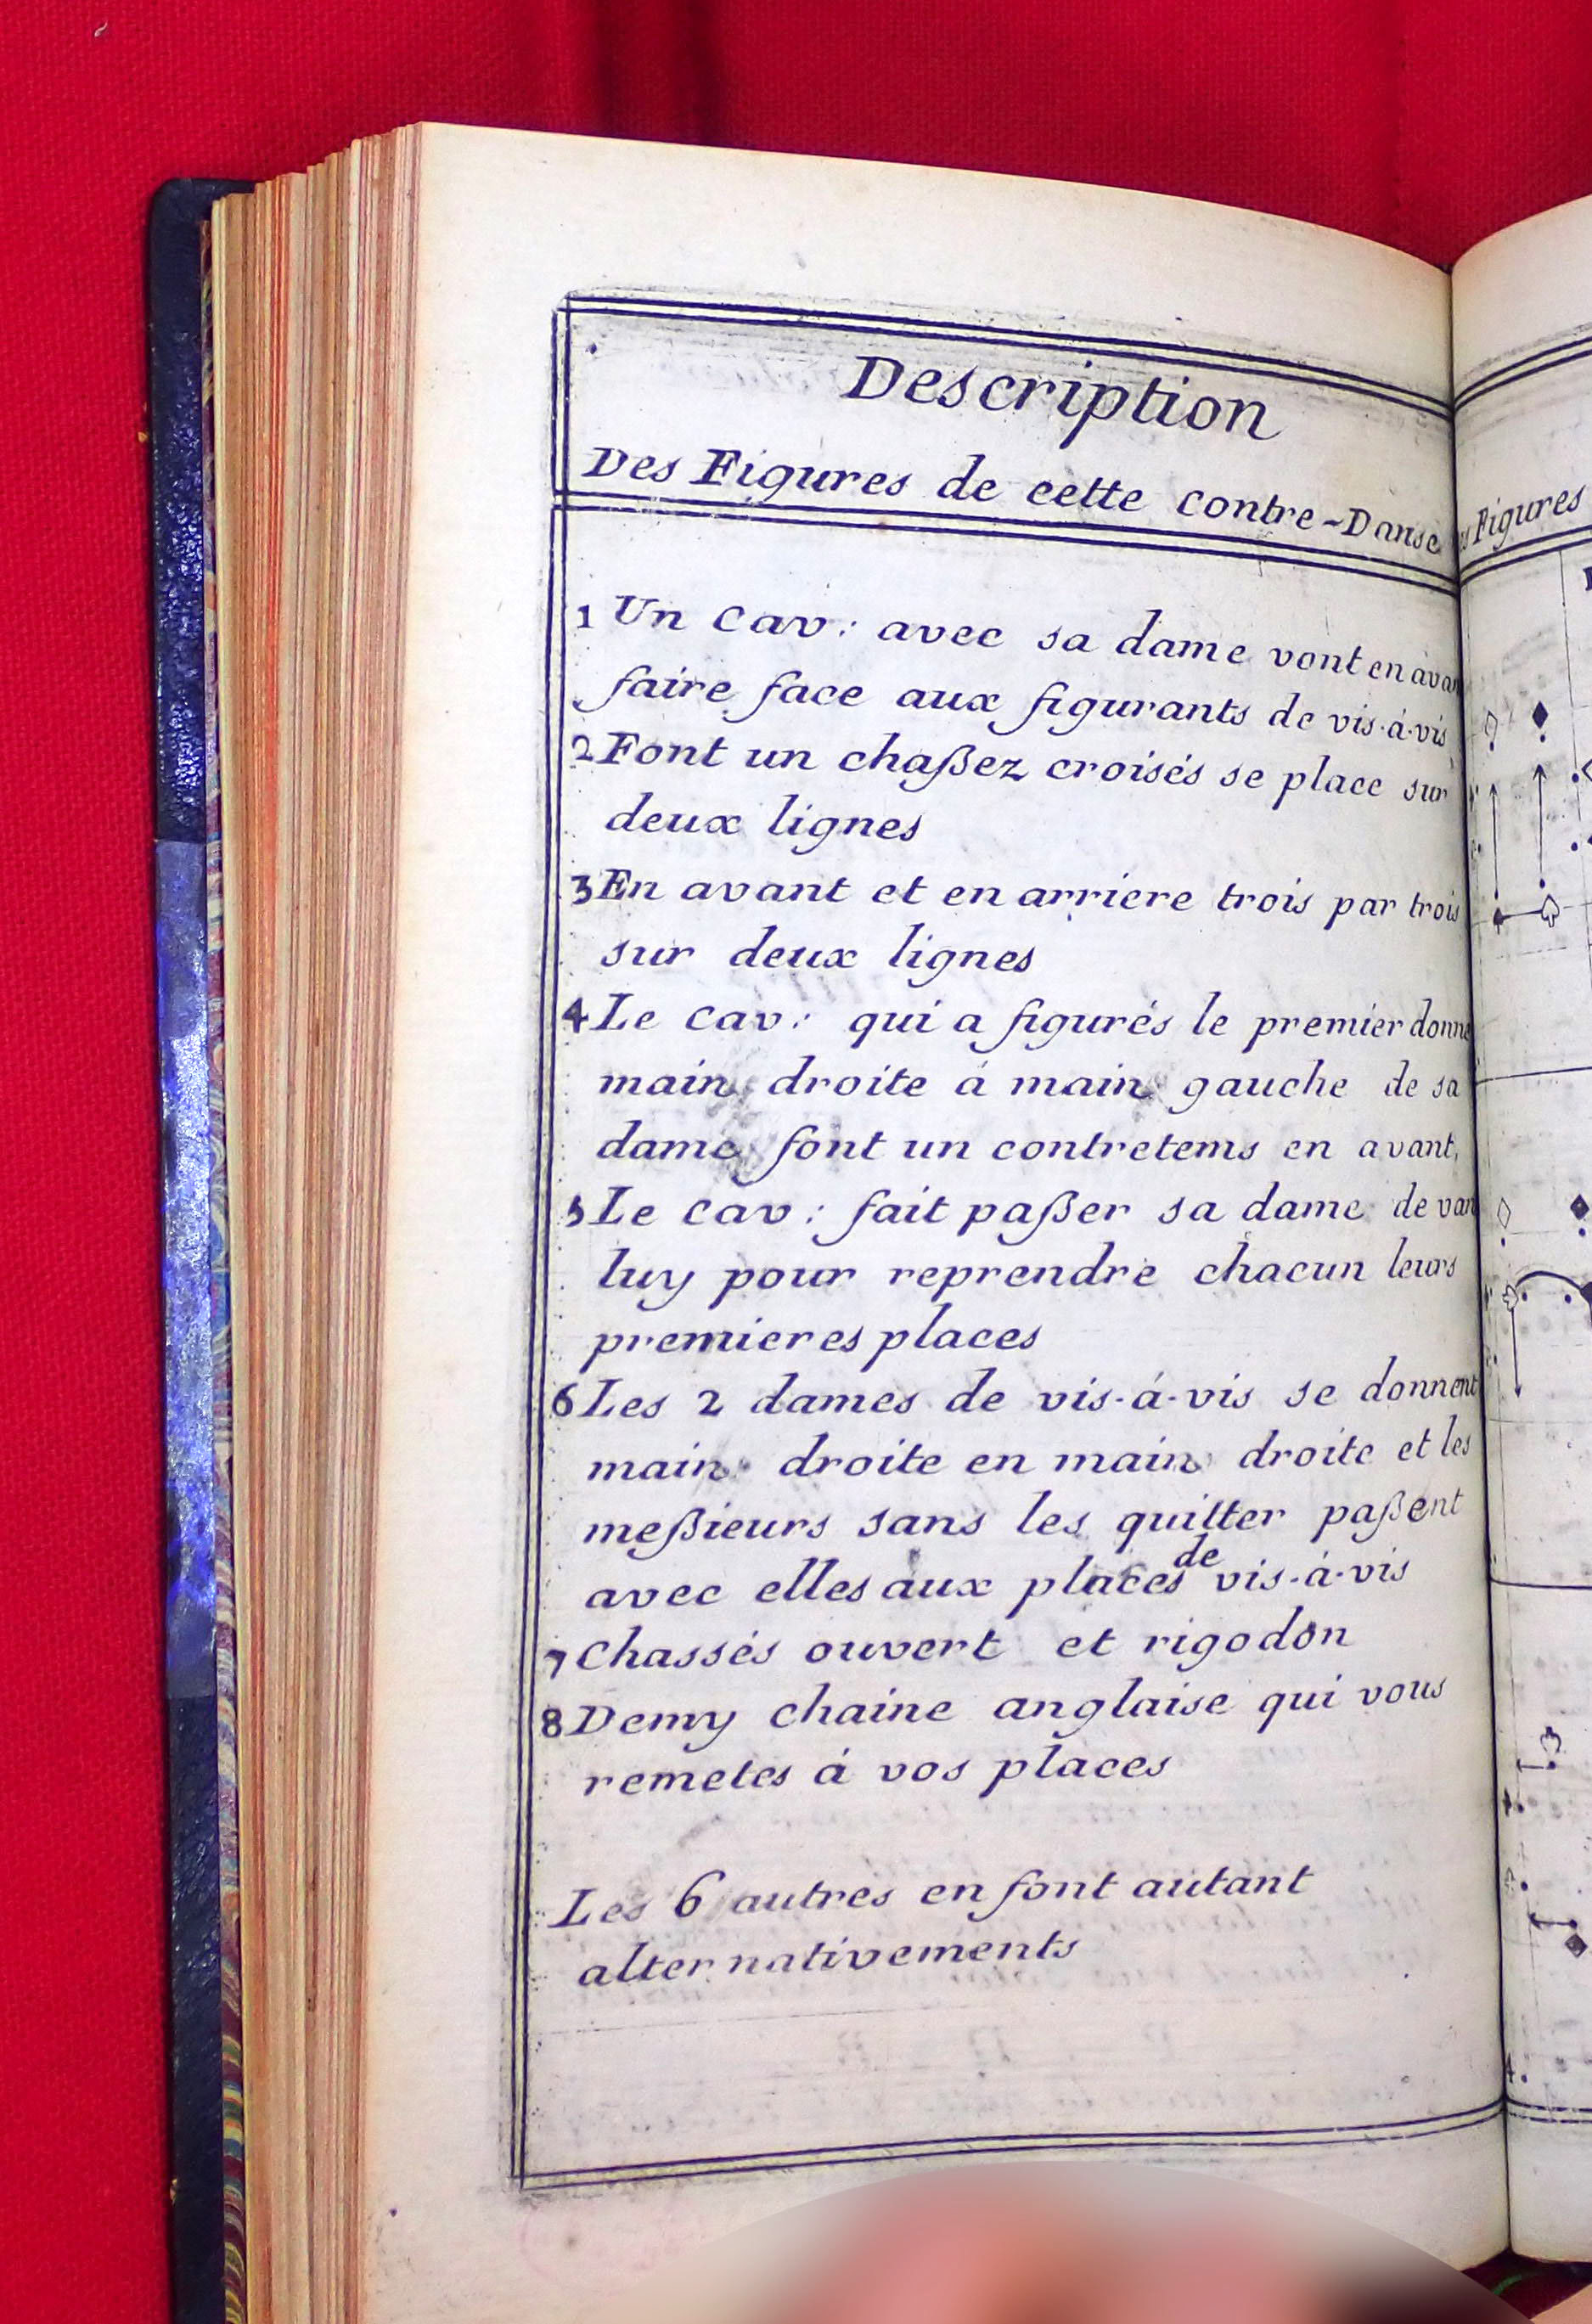 Description
Des Figures de cette contre-Danse
1 Un Cav: avec sa dame vont en avan
faire face aux figurants de vis-á-vis
2 Font un chaßez croisés se place sur
deux lignes
3 En avant et en arriere trois par trois
sur deux lignes
4 Le Cav: qui a figurés le premier donne
main droite á main gauche de sa
dame font un contretems en avant,
5 Le Cav: fait paßer sa dame de van
luy pour reprendre chacun leurs
premieres places
6 Les 2 dames de vis-á-vis se donnent
main droite en main droite et les
meßieurs sans les quitter paßent
avec elles aux places de vis-á-vis
7 Chassés ouvert et rigodon
8 Demy chaine anglaise qui vous
remetes á vos places
Les 6 autres en font autant
alternativements
Figures